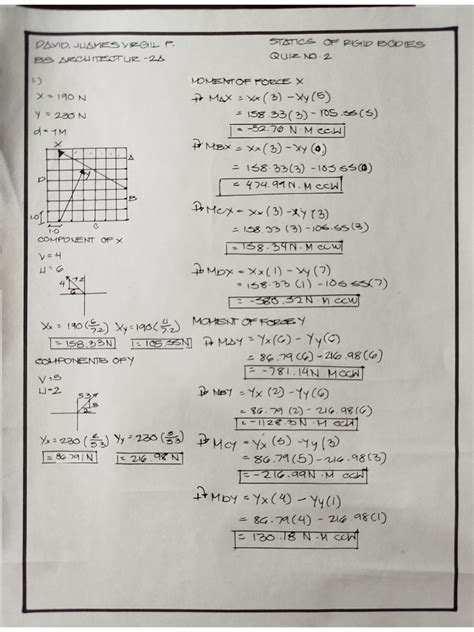 DAVID, JUAMES VIRGIL P.
BS ARCHITECTUR - 2A
STATICS OF RIGID BODIES
QUIZ NO. 2
1.)
X = 190 N
Y = 230 N
d = 1M
X
Y
A
D
B
C
1.0
1.0
COMPONENT OF X
V = 4
H = 6
4
7.2
6
Xx = 190 (6/7.2) Xy = 190 (4/7.2)
= 158.33N = 105.55N
COMPONENTS OF Y
V = 5
H = 2
5.3
5
2
Yx = 230 (2/5.3) Yy = 230 (5/5.3)
= 86.79 N = 216.98 N
MOMENT OF FORCE X
MAX = Xx (3) - Xy (5)
= 158.33 (3) - 105.55 (5)
= -52.76 N·M CCW
MBX = Xx (3) - Xy (0)
= 158.33 (3) - 105.55 (0)
= 474.99 N·M CCW
MCX = Xx (3) - Xy (3)
= 158.33 (3) - 105.55 (3)
= 158.34 N·M CCW
MDX = Xx (1) - Xy (7)
= 158.33 (1) - 105.55 (7)
= -580.52 N·M CCW
MOMENT OF FORCE Y
MAY = Yx (6) - Yy (6)
= 86.79 (6) - 216.98 (6)
= -781.14 N·M CCW
MBY = Yx (2) - Yy (6)
= 86.79 (2) - 216.98 (6)
= -1128.3 N·M CCW
MCY = Yx (5) - Yy (3)
= 86.79 (5) - 216.98 (3)
= -216.99 N·M CCW
MDY = Yx (4) - Yy (1)
= 86.79 (4) - 216.98 (1)
= 130.18 N·M CCW